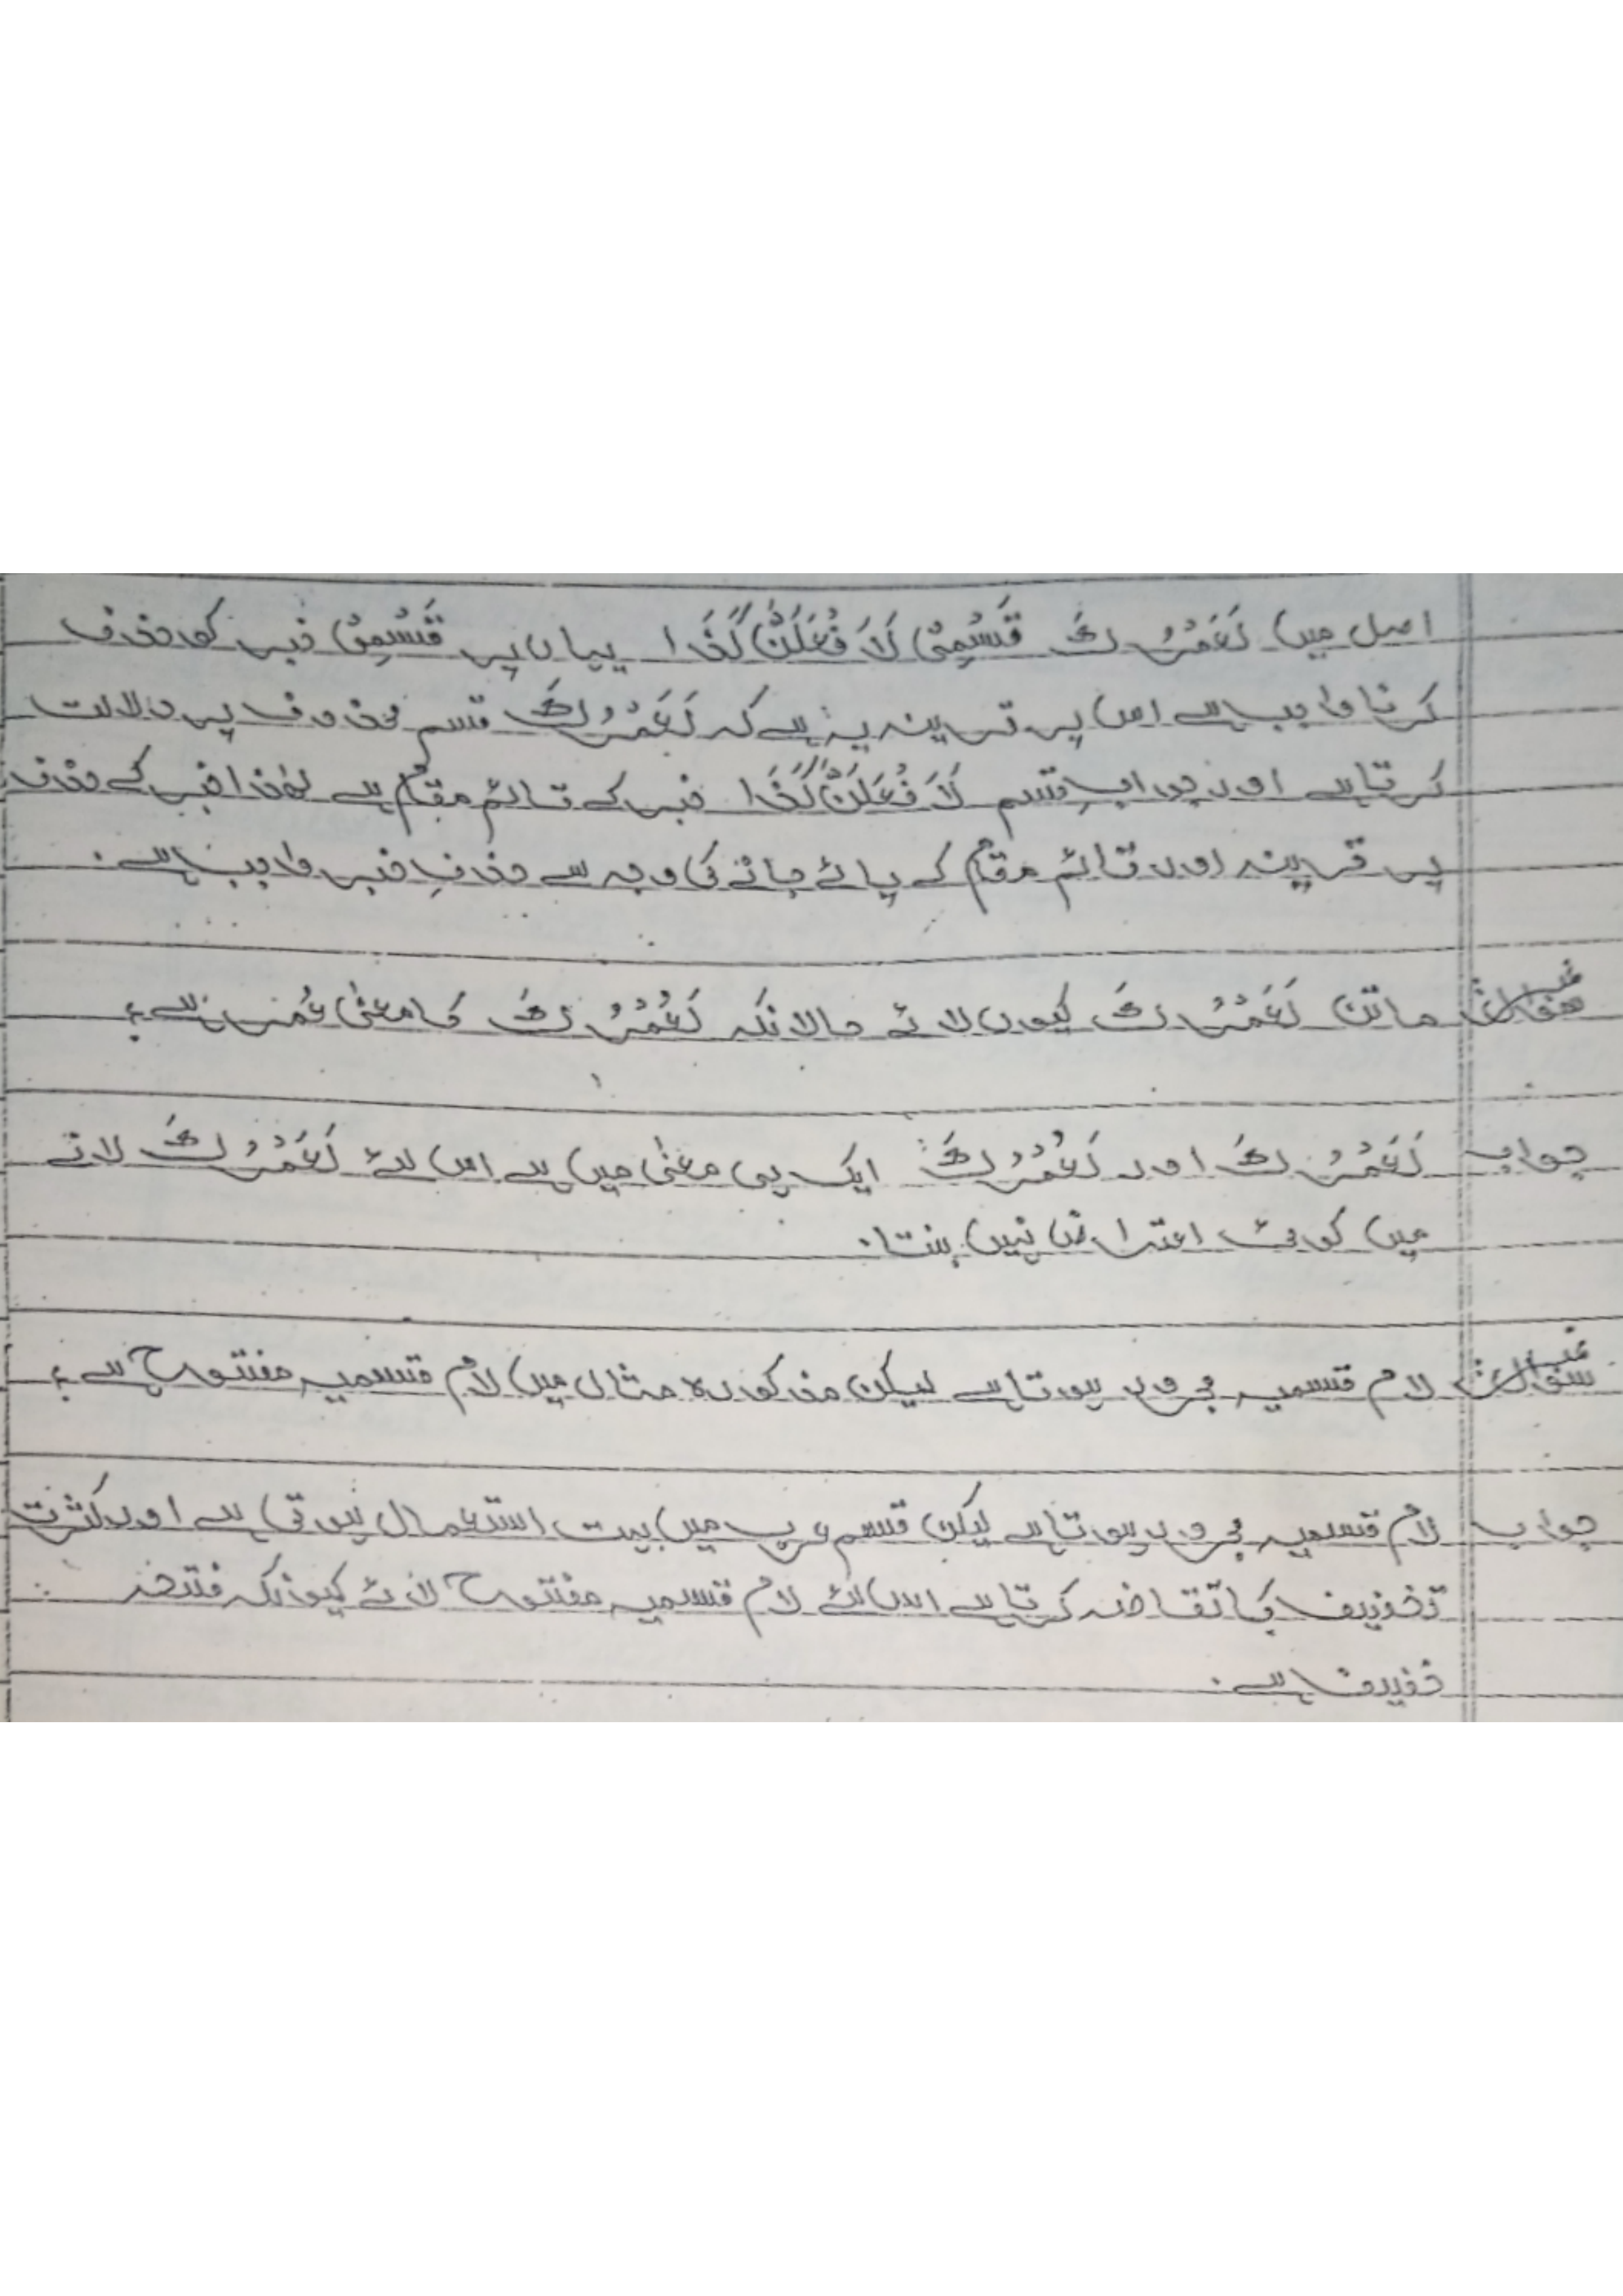 اصل میں لَعَمْرُكَ قَسْمِیْ لَاَفْعَلَنَّ كَذَا یہاں پر قَسْمِیْ خبر کو حذف
کرنا واجب ہے اس پر قرینہ یہ ہے کہ لَعَمْرُكَ قسم محذوف پر دلالت
کرتا ہے اور جوابِ قسم لَاَفْعَلَنَّ كَذَا خبر کے قائم مقام ہے لہٰذا خبر کے حذف
پر قرینہ اور قائم مقام کے پائے جانے کی وجہ سے حذفِ خبر واجب ہے۔
سوال ماتن لَعَمْرُكَ کیوں لائے حالانکہ لَعُمْرُكَ کا معنٰی عُمر ہے؟
جواب لَعَمْرُكَ اور لَعُمْرُكَ ایک ہی معنٰی میں ہے اس لئے لَعَمْرُكَ لانے
میں کوئی اعتراض نہیں بنتا۔
سوال لام قسمیہ مجرور ہوتا ہے لیکن مذکورہ مثال میں لام قسمیہ مفتوح ہے؟
جواب لام قسمیہ مجرور ہوتا ہے لیکن قسم عرب میں بہت استعمال ہوتی ہے اور کثرت
تخفیف کا تقاضہ کرتا ہے اس لئے لام قسمیہ مفتوح لائے کیونکہ فتحہ
خفیف ہے۔